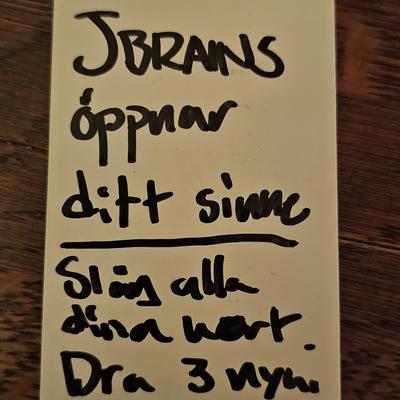 JBRAINS
öppnar
ditt sinne
Släng alla
dina kort
Dra 3 nya.